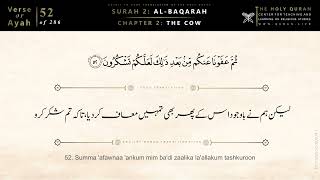 Verse or Ayah
52 of 286
SURAH 2: AL-BAQARAH
CHAPTER 2: THE COW
THE HOLY QURAN
CENTER FOR TEACHING AND
LEARNING OR RELIGIOUS STUDIES
ثُمَّ عَفَوْنَا عَنكُم مِّن بَعْدِ ذَٰلِكَ لَعَلَّكُمْ تَشْكُرُونَ ﴿٥٢﴾
لیکن ہم نے باوجود اس کے پھر بھی تمہیں معاف کردیا، تاکہ تم شکر کرو
52. Summa 'afawnaa 'ankum mim ba'di zaalika la'allakum tashkuroon